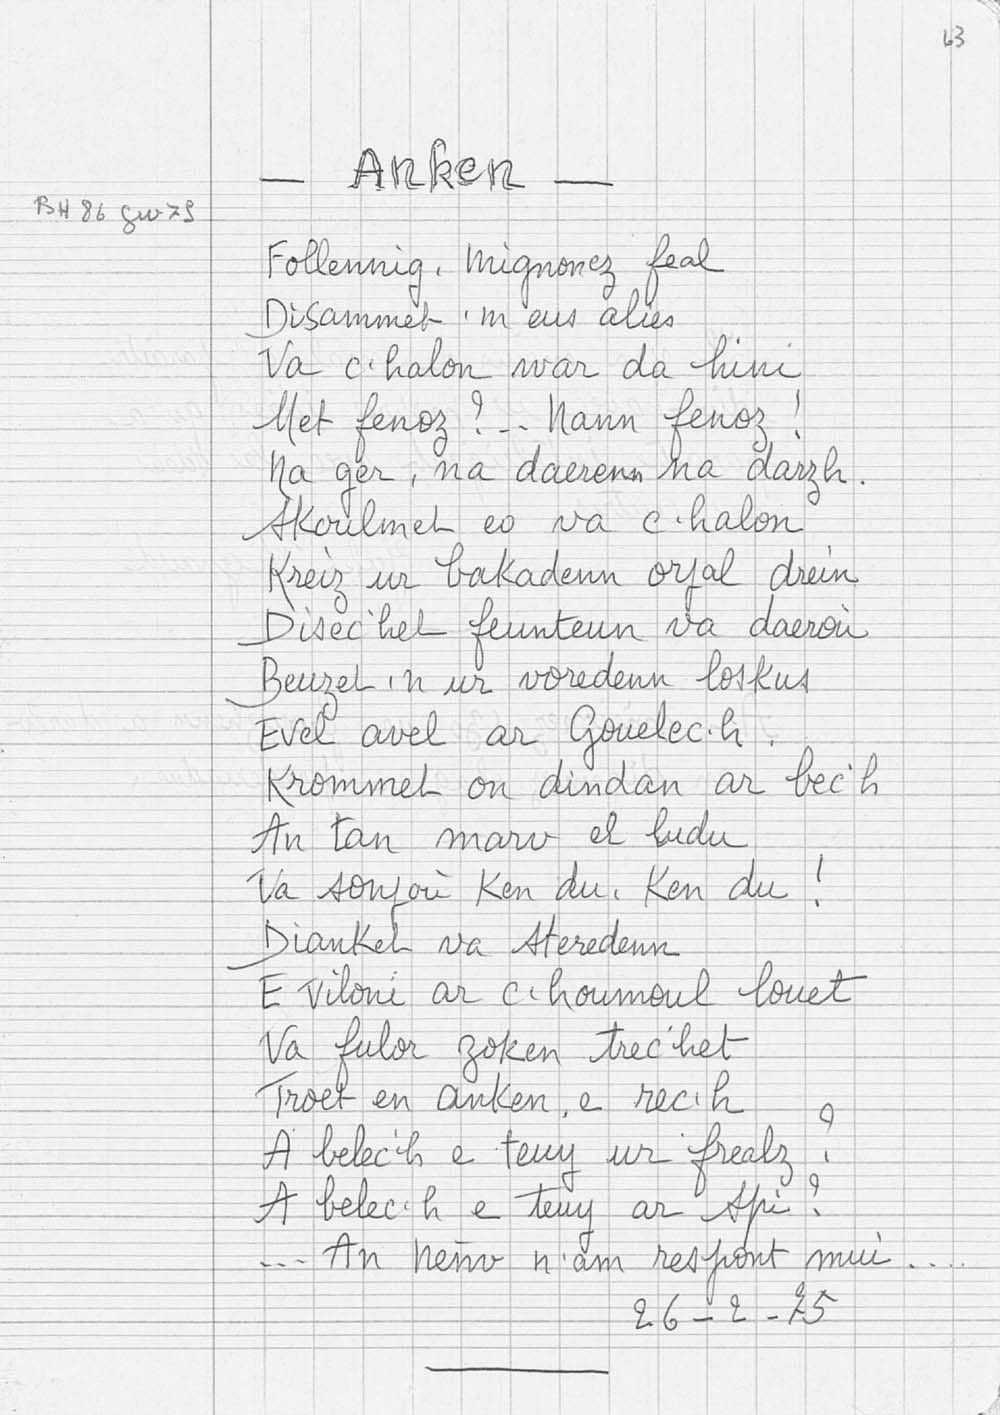 63
— Anken —
BH 86 gw 79
Follennig, mignonez feal
Disammet 'm eus alies
Va c'halon war da hini
Met fenoz ? -- Nann fenoz !
Na ger, na daerenn na darzh.
Skoulmet eo va c'halon
Kreiz ur bakadenn orjal drein
Disec'het feunteun va daeroù
Beuzet 'n ur voredenn loskus
Evel avel ar Gouelec'h.
Krommet on dindan ar bec'h
An tan marv el ludu
Va sonjoù ken du, ken du !
Dianket va steredenn
E viloni ar c'houmoul louet
Va fulor zoken trec'het
Troet en anken, e rec'h
A belec'h e teuy ur frealz ?
A belec'h e teuy ar spi ?
--- An neñv n'am respont mui ....
26 - 2 - 75